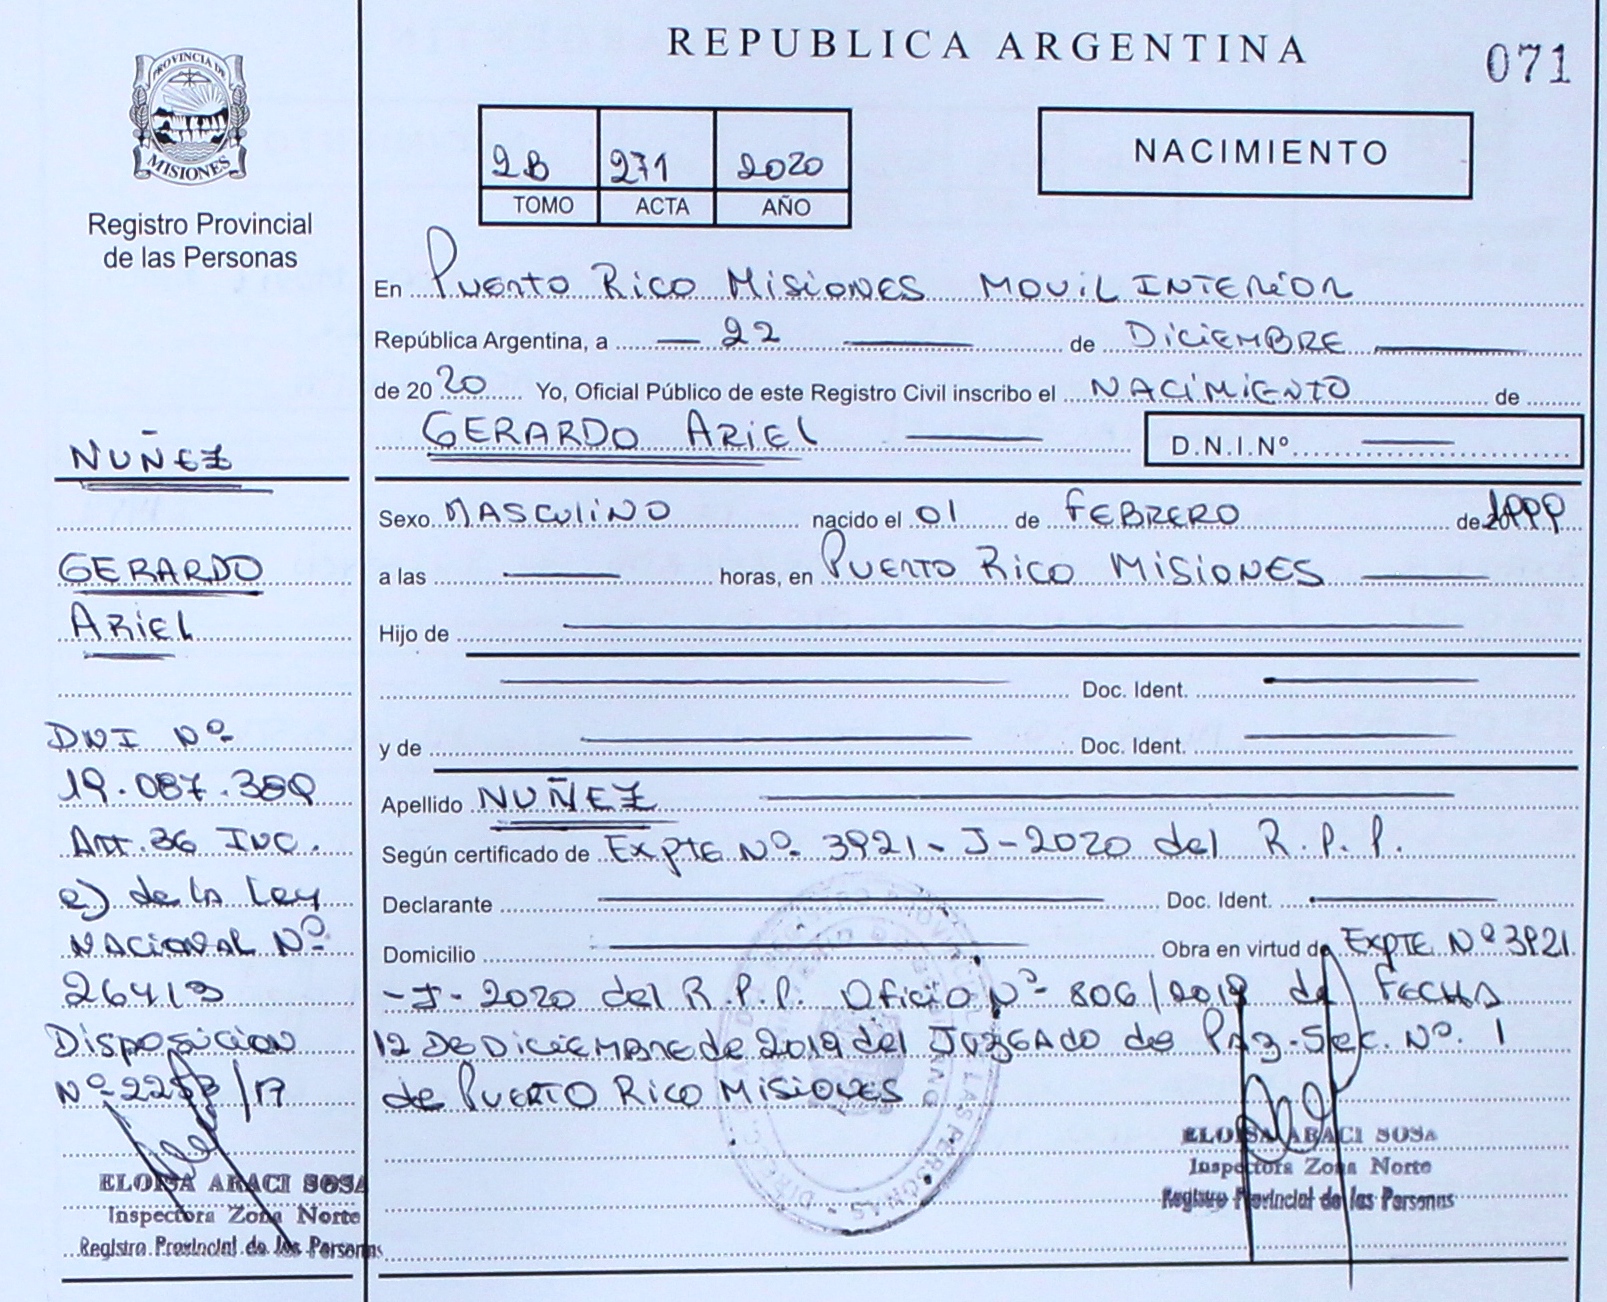 PROVINCIA DE
MISIONES
Registro Provincial
de las Personas
REPUBLICA ARGENTINA
071
2B 271 2020
TOMO ACTA AÑO
NACIMIENTO
En Puerto Rico Misiones Movil Interior
República Argentina, a — 22 — de Diciembre —
de 20 20 Yo, Oficial Público de este Registro Civil inscribo el Nacimiento de
GERARDO ARIEL — D.N.I.Nº —
Sexo Masculino nacido el 01 de Febrero de 20
a las — horas, en Puerto Rico Misiones —
Hijo de —
— Doc. Ident. —
y de — Doc. Ident. —
Apellido NUÑEZ —
Según certificado de Expte Nº 3921-J-2020 del R.P.P.
Declarante — Doc. Ident. —
Domicilio — Obra en virtud de Expte Nº 3921
-J-2020 del R.P.P. Oficio Nº 806/2019 de Fecha
12 de Diciembre de 2019 del Juzgado de Paz-Sec. Nº 1
de Puerto Rico Misiones
ELOISA ARACI SOSA
Inspectora Zona Norte
Registro Provincial de las Personas
NUÑEZ
GERARDO
ARIEL
DNI Nº
Art. 36 Inc.
e) de la Ley
Nacional Nº
26413
Disposicion
ELOISA ARACI SOSA
Inspectora Zona Norte
Registro Provincial de las Personas